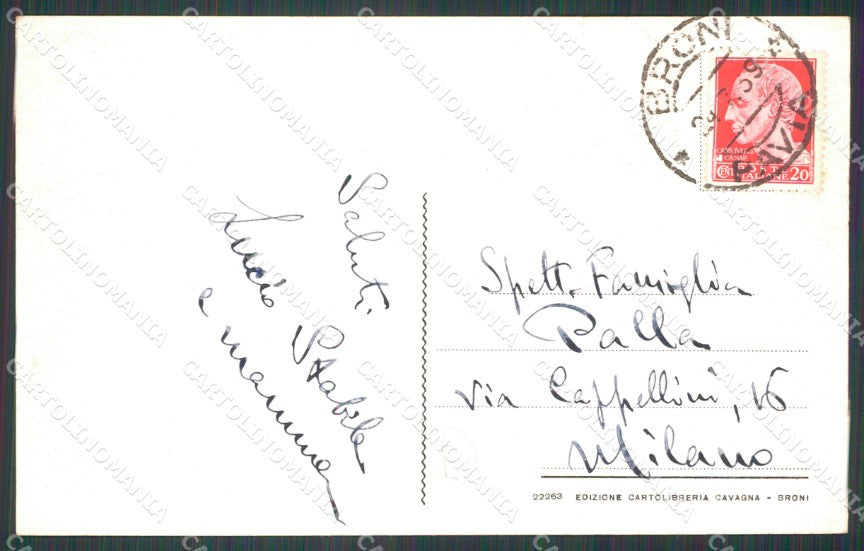 Saluti
Lucio Stabile
e mamma
BRONI
PAVIA
POSTE ITALIANE
CENT. 20
Spett. Famiglia
Palla
via Cappellini, 16
Milano
22263 EDIZIONE CARTOLIBRERIA CAVAGNA - BRONI
CARTOLINOMANIA